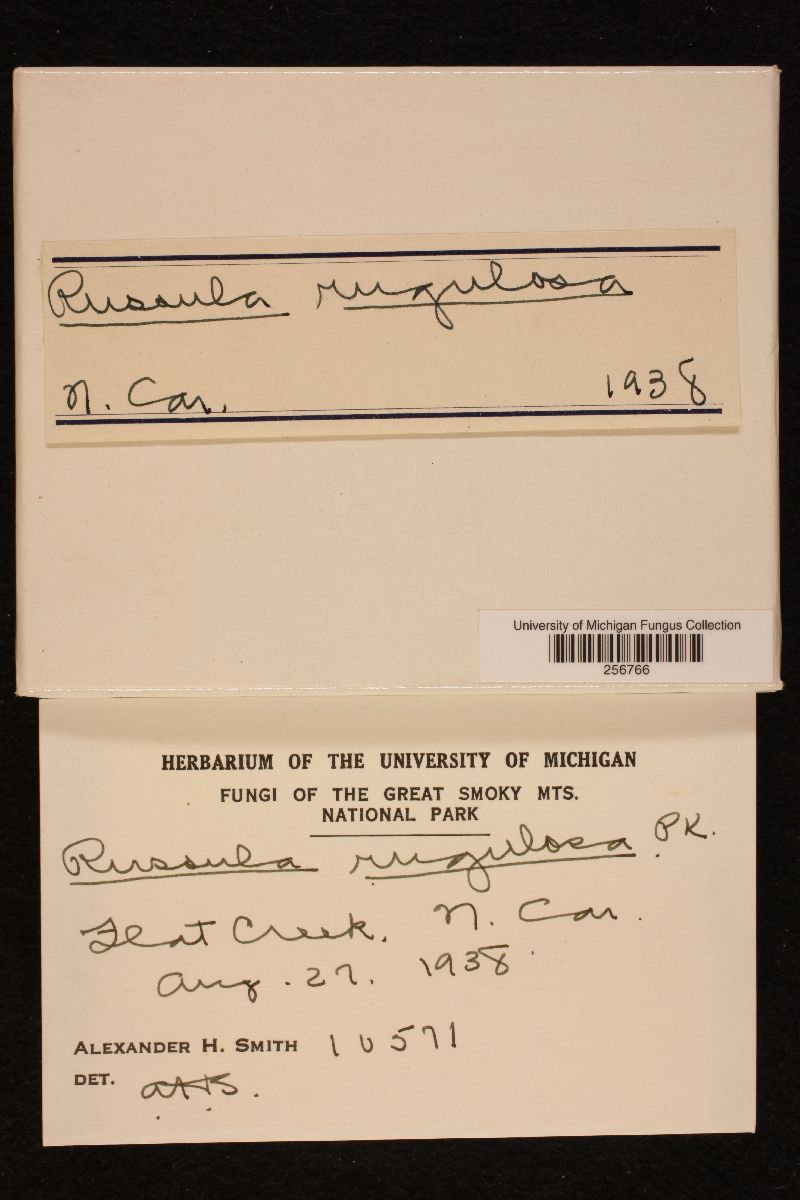 Russula rugulosa
N. Car. 1938
University of Michigan Fungus Collection
256766
HERBARIUM OF THE UNIVERSITY OF MICHIGAN
FUNGI OF THE GREAT SMOKY MTS.
NATIONAL PARK
Russula rugulosa PK.
Flat Creek, N. Car.
Aug. 27, 1938
ALEXANDER H. SMITH 10571
DET. AHS.